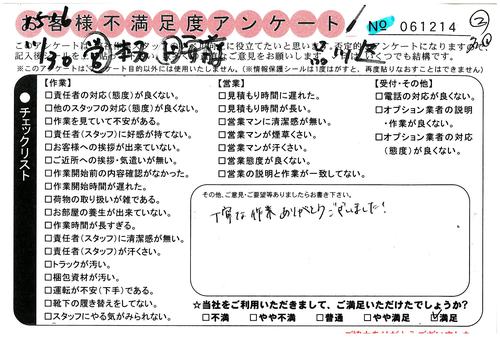 お客様不満足度アンケート
№ 061214
②
品川区
※このアンケートは、アンケート目的以外には使用いたしません。(※情報保護シールは1度はがすと、再度貼りなおすことはできません
チェックリスト
【作業】
□責任者の対応(態度)が良くない。
□他のスタッフの対応(態度)が良くない。
□作業を見ていて不安がある。
□責任者(スタッフ)に好感が持てない。
□お客様への挨拶が出来ていない。
□ご近所への挨拶・気遣いが無い。
□作業開始前の内容確認がなかった。
□作業開始時間が遅れた。
□荷物の取り扱いが雑である。
□お部屋の養生が出来ていない。
□作業時間が長すぎる。
□責任者(スタッフ)に清潔感が無い。
□責任者(スタッフ)が汗くさい。
□トラックが汚い。
□梱包資材が汚い。
□運転が不安(下手)である。
□靴下の履き替えをしてない。
□スタッフにやる気がみられない。
【営業】
□見積もり時間に遅れた。
□見積もり時間が長い。
□営業マンに清潔感が無い。
□営業マンが煙草くさい。
□営業マンが汗くさい。
□営業態度が良くない。
□営業の説明と作業が一致してない。
【受付・その他】
□電話の対応が良くない。
□オプション業者の説明
・作業が良くない。
□オプション業者の対応
(態度)が良くない。
その他、ご意見・ご要望等ありましたらお書き下さい。
丁寧な作業ありがとうございました!
☆当社をご利用いただきまして、ご満足いただけたでしょうか?
□不満 □やや不満 □普通 □やや満足 ☑満足